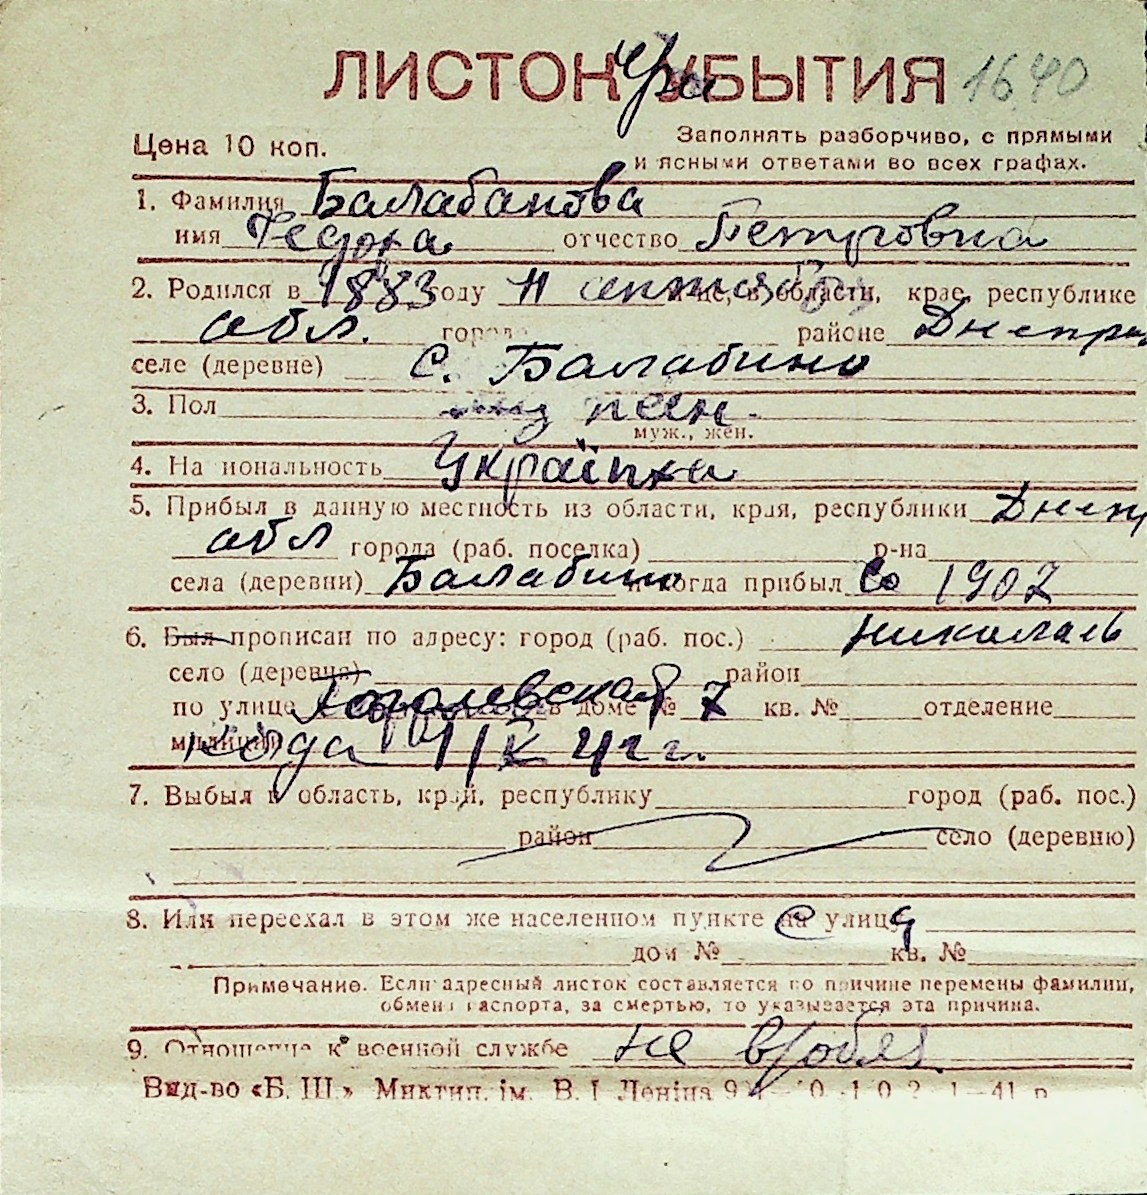 ЛИСТОК УБЫТИЯ 1640
Цена 10 коп.
Заполнять разборчиво, с прямыми
и ясными ответами во всех графах.
1. Фамилия Балабанова
имя Федора отчество Петровна
2. Родился в 1883 году 11 октября м-це, в области, крае, республике
обл. город районе Днепр
селе (деревне) с. Балабино
3. Пол жен.
муж., жен.
4. Национальность Українка
5. Прибыл в данную местность из области, края, республики Днепр
обл города (раб. поселка) р-на
села (деревни) Балабино и когда прибыл Со 1907
6. Был прописан по адресу: город (раб. пос.) Николаев
село (деревня) район
по улице в доме № 7 кв. № отделение
милиции Когда 11/X 42 г.
7. Выбыл в область, край, республику город (раб. пос.)
район село (деревню)
8. Или переехал в этом же населенном пункте на с улицу я
дом № кв. №
Примечание. Если адресный листок составляется по причине перемены фамилии,
обмена паспорта, за смертью, то указывается эта причина.
9. Отношение к военной службе не
Вид-во «Б. Ш.» Миктип. ім. В. І. Леніна